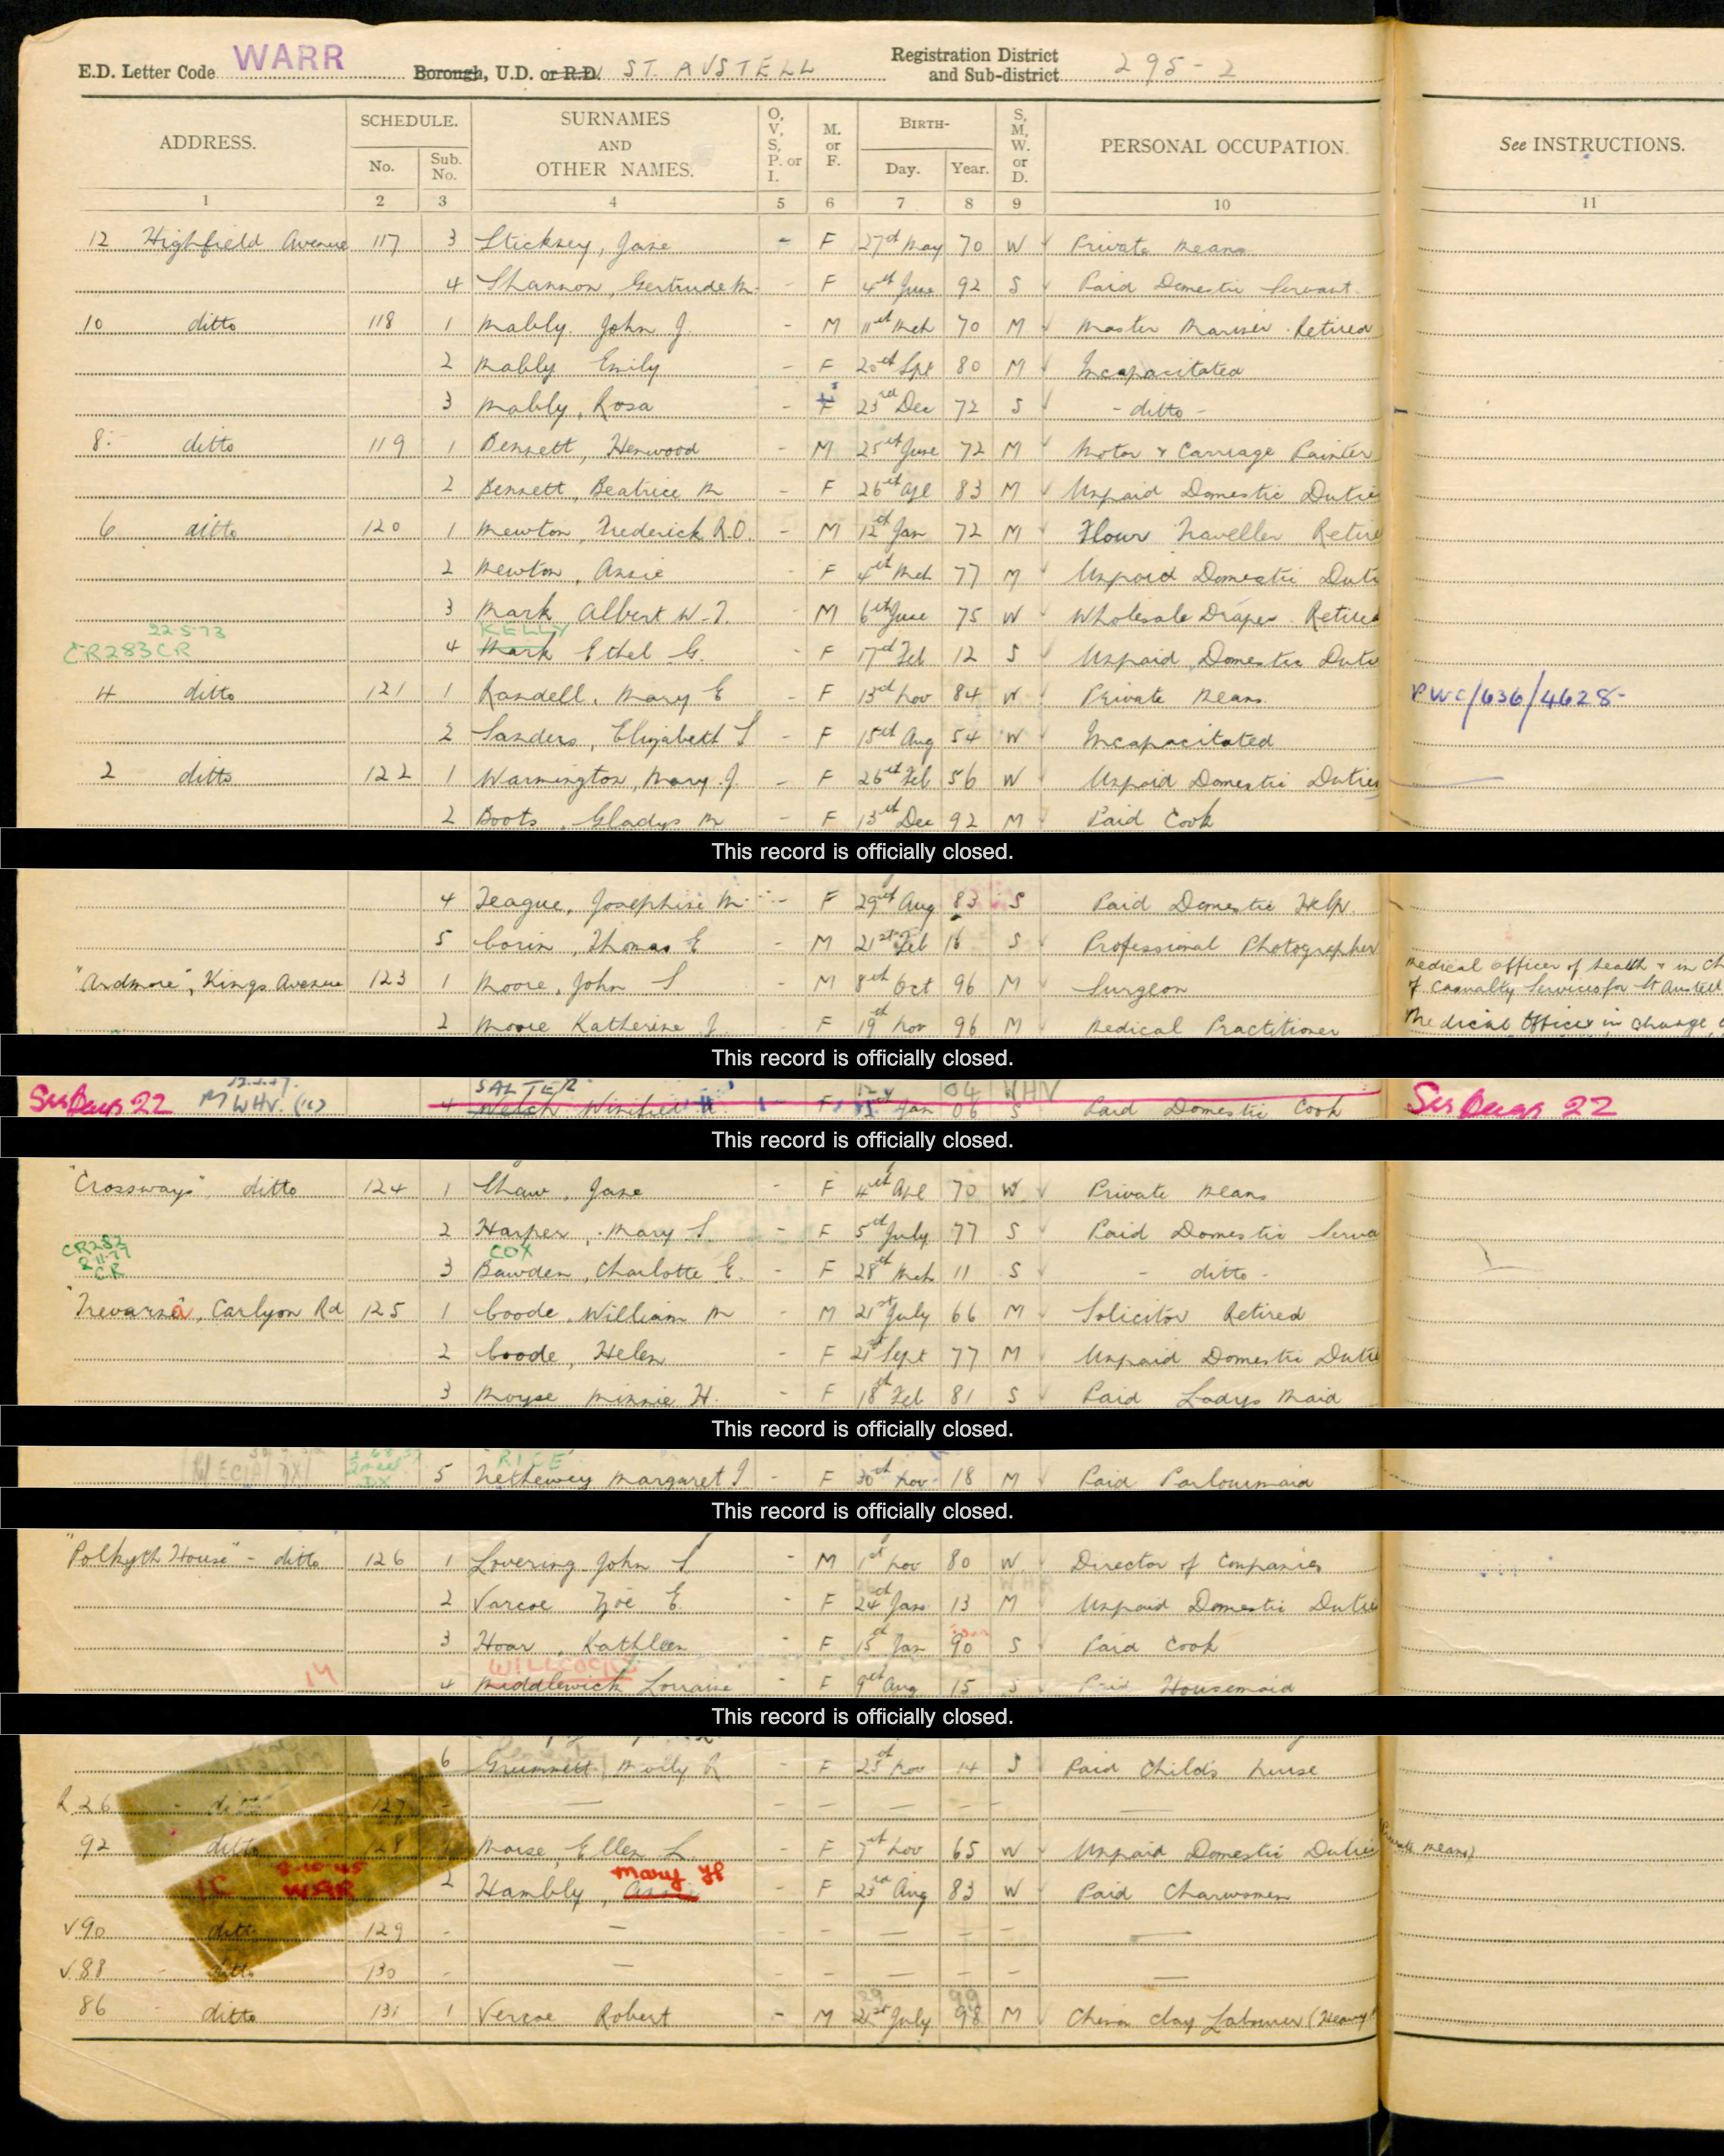 E.D. Letter Code WARR Borough, U.D. or R.D. ST. AUSTELL Registration District and Sub-district 295-2
ADDRESS. SCHEDULE. No. Sub. No. SURNAMES AND OTHER NAMES. O, V, S, P. or I. M. or F. BIRTH- Day. Year. S, M, W. or D. PERSONAL OCCUPATION. See INSTRUCTIONS.
1 2 3 4 5 6 7 8 9 10 11
12 Highfield Avenue 117 3 Sticksey, Jane - F 27th May 70 W Private Means
4 Shannon, Gertrude M. - F 4th June 92 S Paid Domestic Servant
10 ditto 118 1 Mably John J. - M 11th Mch 70 M Master Mariner Retired
2 Mably Emily - F 20th Spt 80 M Incapacitated
3 Mably, Rosa - F 23rd Dec 72 S - ditto -
8 ditto 119 1 Bennett, Henwood - M 25th June 72 M Motor & Carriage Painter
2 Bennett, Beatrice M - F 26th Apl 83 M Unpaid Domestic Dutie
6 ditto 120 1 Mewton, Frederick R.O. - M 12th Jan 72 M Flour Traveller Retire
2 Mewton, Annie - F 4th Mch 77 M Unpaid Domestic Duti
3 Mark Albert W.T. - M 6th June 75 W Wholesale Draper Retired
22.5.73 KELLY
CR283CR 4 Mark Ethel G. - F 17th Feb 12 S Unpaid Domestic Duti
4 ditto 121 1 Randell, Mary E - F 13th Nov 84 W Private Means PWC/636/4628
2 Sanders, Elizabeth S - F 15th Aug 54 W Incapacitated
2 ditto 122 1 Warmington, Mary J. - F 26th Feb 56 W Unpaid Domestic Duties
2 Boots, Gladys M - F 13th Dec 92 M Paid Cook
This record is officially closed.
4 Teague, Josephine M. - F 29th Aug 83 S Paid Domestic Help.
5 Corin, Thomas E - M 21st Feb 16 S Professional Photographer
"Ardmore", Kings Avenue 123 1 Moore, John S. - M 8th Oct 96 M Surgeon Medical Officer of Health & in Ch
of Casualty Services for St Austell
2 Moore Katherine J. F 19th Nov 96 M Medical Practitioner Medical Officer in Charge
This record is officially closed.
SALTER 12 04 WHV
See Page 22 M WHV. 4 Welch Winifred F Jan 06 S Paid Domestic Cook See Page 22
This record is officially closed.
"Crossways", ditto 124 1 Shaw, Jane - F 4th Apl 70 W Private Means
2 Harper, Mary S. - F 5th July 77 S Paid Domestic Serva
CR282
2.11.77 COX
CR 3 Bawden, Charlotte E. - F 28th Mch 11 S - ditto -
"Trevarna", Carlyon Rd 125 1 Coode, William M - M 21st July 66 M Solicitor Retired
2 Coode, Helen - F 21st Sept 77 M Unpaid Domestic Dutie
3 Moyse Minnie H. - F 18th Feb 81 S Paid Ladys Maid
This record is officially closed.
RICE
5 Trethewey Margaret J - F 30th Nov 18 M Paid Parlourmaid
This record is officially closed.
"Polkyth House" - ditto 126 1 Lovering John S. - M 1st Nov 80 W Director of Companies
2 Varcoe Zoë E. - F 24th Jan 13 M Unpaid Domestic Dutie
3 Hoar, Kathleen - F 15th Jan 90 S Paid Cook
WILLCOCKS
14 4 Middlewick Lorraine - F 9th Aug 15 S Paid Housemaid
This record is officially closed.
6 Grummett Molly R - F 25th Nov 14 S Paid Childs Nurse
R 26 - ditto 127 - — - - — - - —
92 ditto 128 Morse, Ellen L. - F 7th Nov 65 W Unpaid Domestic Duties Private means)
8-10-45 Mary
WAR 2 Hambly, - F 23rd Aug 83 W Paid Charwoman
√90 ditto 129 - — - - — - - —
√88 - ditto 130 - — - - — - - —
29 99
86 - ditto 131 1 Vercoe Robert - M 21st July 98 M China Clay Labourer (Heavy